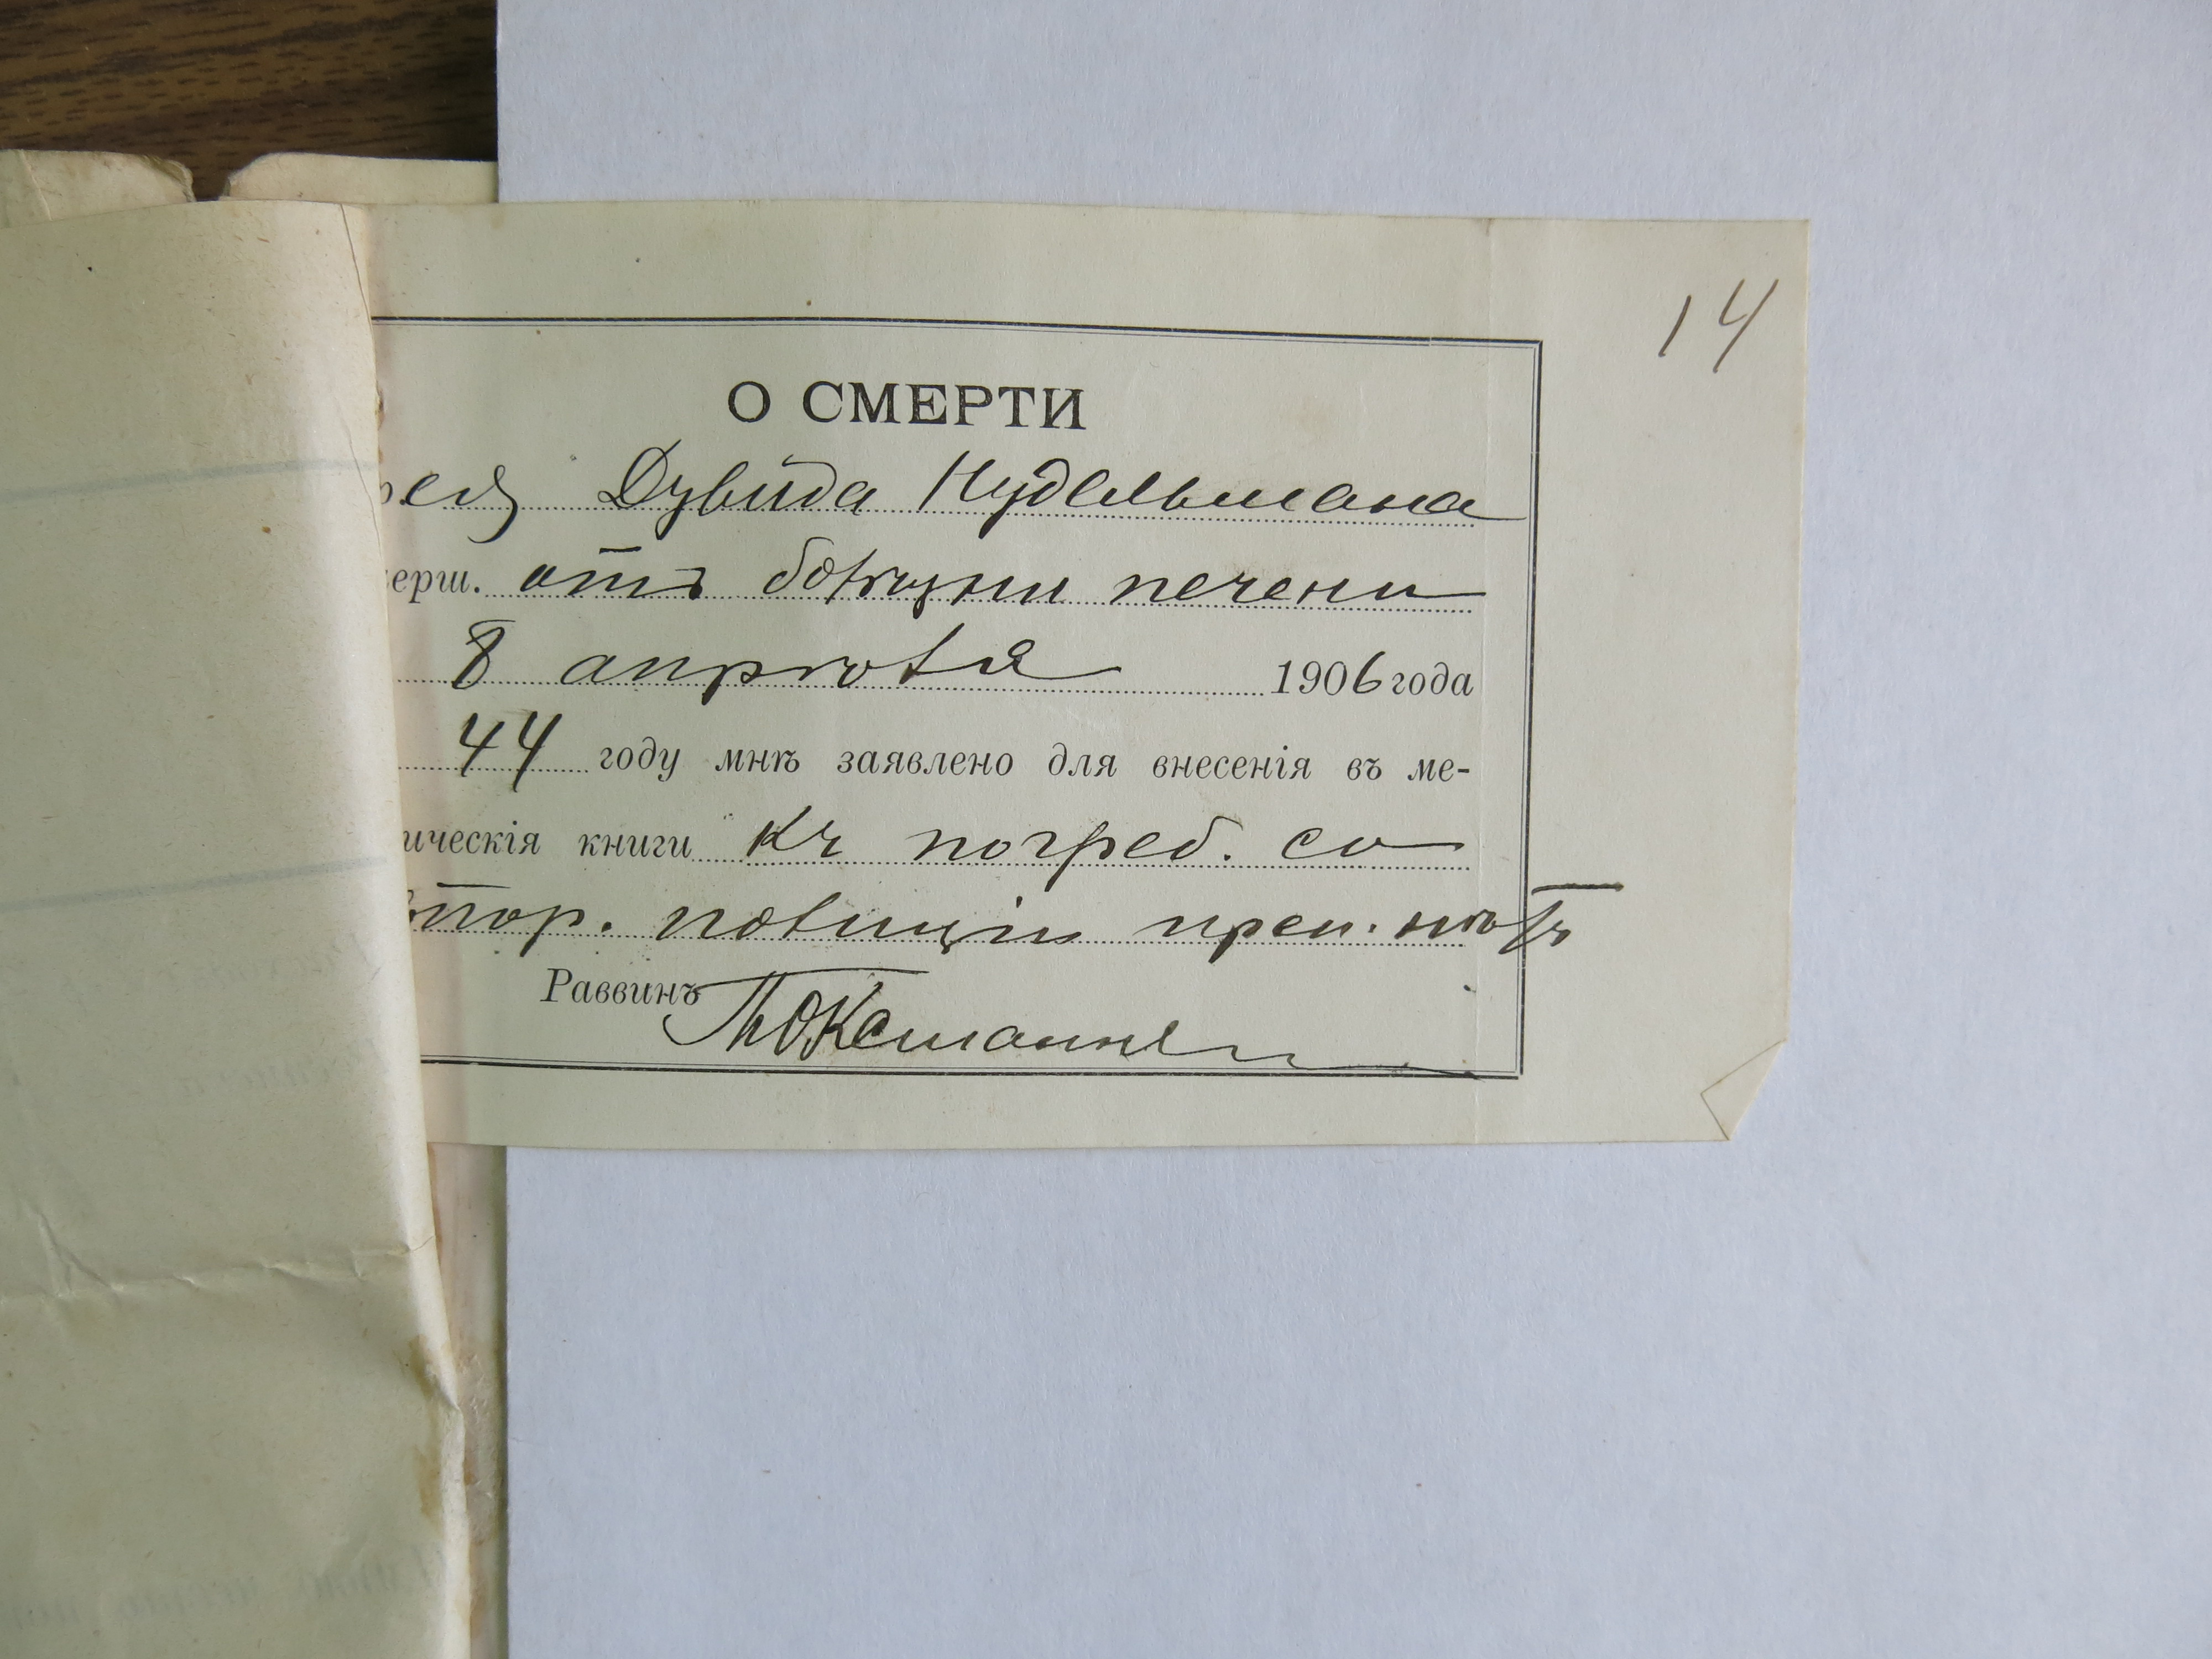 14
О СМЕРТИ
рея Дувида Нудельмана
ерш. отъ болѣзни печени
8 апрѣля 1906 года
44 году мнѣ заявлено для внесенія въ ме-
ическія книги Къ погреб. со
стор. полиціи преп. нѣтъ
Раввинъ